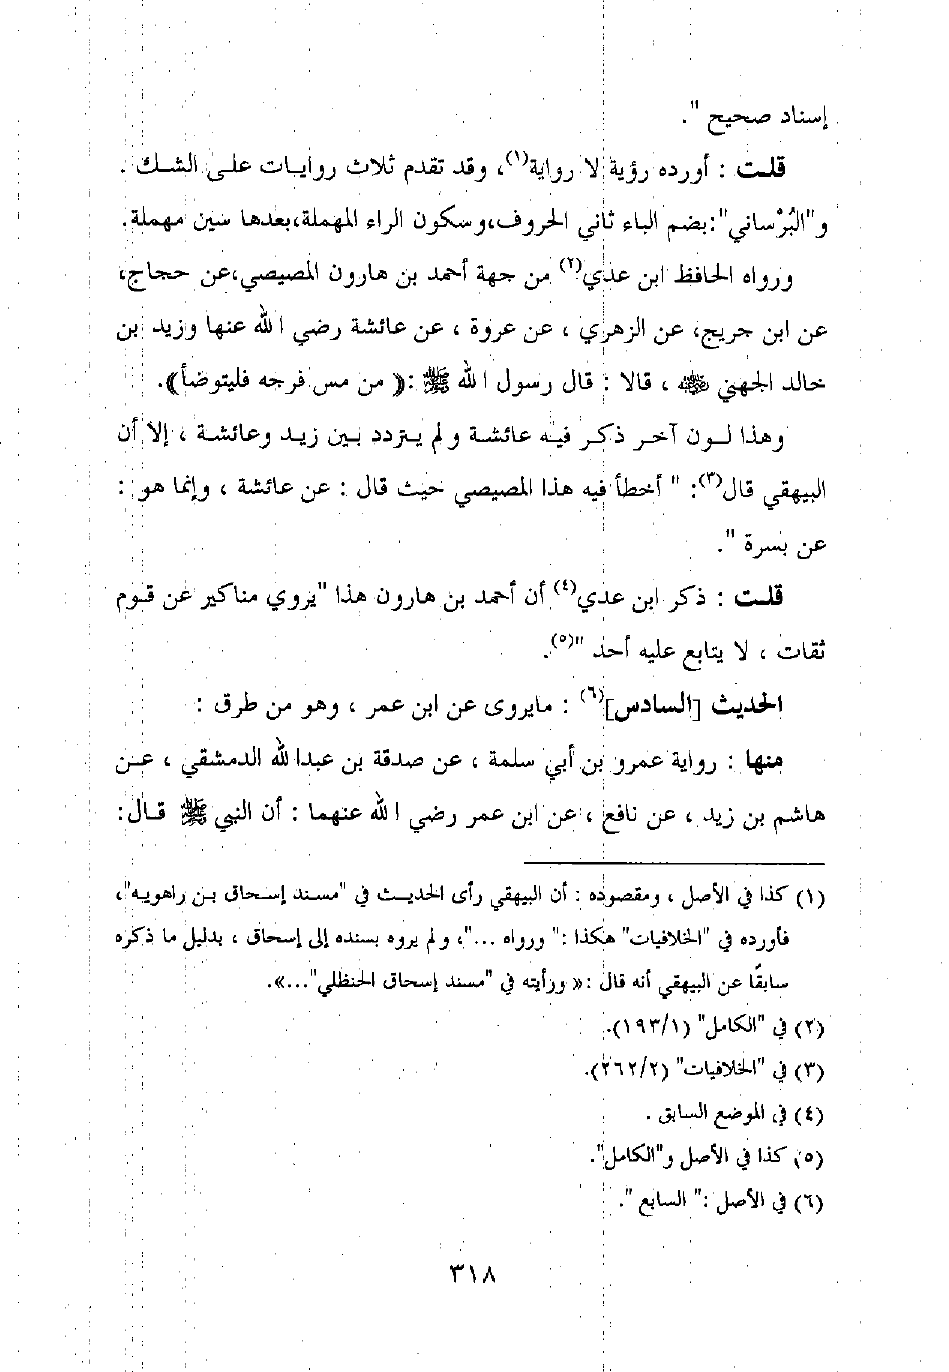 إسناد صحيح ".
قلت : أورده رؤية لا رواية(١)، وقد تقدم ثلاث روايات على الشك .
و"البُرْساني":بضم الباء ثاني الحروف،وسكون الراء المهملة،بعدها سين مهملة.
ورواه الحافظ ابن عدي(٢) من جهة أحمد بن هارون المصيصي،عن حجاج،
عن ابن جريج، عن الزهري ، عن عروة ، عن عائشة رضي الله عنها وزيد بن
خالد الجهني ﵁ ، قالا : قال رسول الله ﷺ :﴿ من مس فرجه فليتوضأ﴾.
وهذا لون آخر ذكر فيه عائشة ولم يتردد بين زيد وعائشة ، إلا أن
البيهقي قال(٣): " أخطأ فيه هذا المصيصي حيث قال : عن عائشة ، وإنما هو :
عن بسرة ".
قلت : ذكر ابن عدي(٤) أن أحمد بن هارون هذا "يروي مناكير عن قوم
ثقات ، لا يتابع عليه أحد "(٥).
الحديث [السادس](٦) : مايروى عن ابن عمر ، وهو من طرق :
منها : رواية عمرو بن أبي سلمة ، عن صدقة بن عبدالله الدمشقي ، عن
هاشم بن زيد ، عن نافع ، عن ابن عمر رضي الله عنهما : أن النبي ﷺ قال:
(١) كذا في الأصل ، ومقصوده : أن البيهقي رأى الحديث في "مسند إسحاق بن راهويه"،
فأورده في "الخلافيات" هكذا :" ورواه ..."، ولم يروه بسنده إلى إسحاق ، بدليل ما ذكره
سابقًا عن البيهقي أنه قال :« ورأيته في "مسند إسحاق الحنظلي"...».
(٢) في "الكامل" (١٩٣/١).
(٣) في "الخلافيات" (٢٦٢/٢).
(٤) في الموضع السابق .
(٥) كذا في الأصل و"الكامل".
(٦) في الأصل :" السابع ".
٣١٨